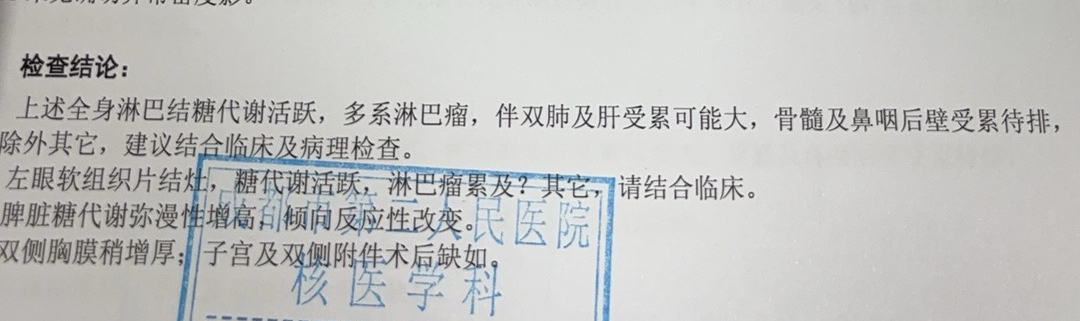 检查结论：
上述全身淋巴结糖代谢活跃，多系淋巴瘤，伴双肺及肝受累可能大，骨髓及鼻咽后壁受累待排，
除外其它，建议结合临床及病理检查。
左眼软组织片结灶，糖代谢活跃，淋巴瘤累及？其它，请结合临床。
脾脏糖代谢弥漫性增高，倾向反应性改变。
双侧胸膜稍增厚；子宫及双侧附件术后缺如。
成都市第二人民医院
核医学科